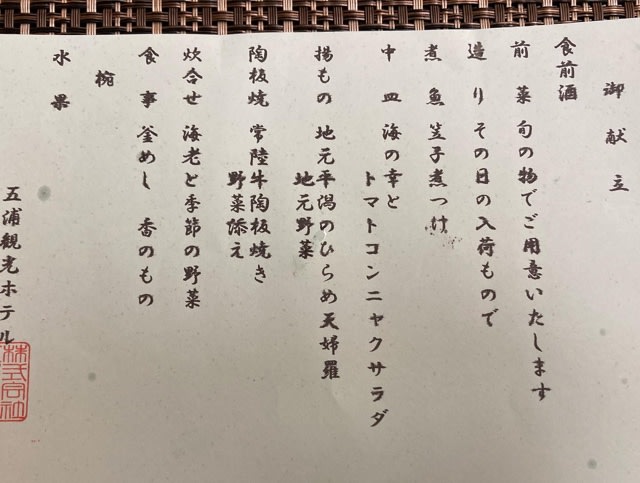 御献立
食前酒
前菜 旬の物でご用意いたします
造り その日の入荷もので
煮魚 笠子煮つけ
中皿 海の幸と
トマトコンニャクサラダ
揚もの 地元平潟のひらめ天婦羅
地元野菜
陶板焼 常陸牛陶板焼き
野菜添え
炊合せ 海老と季節の野菜
食事 釜めし 香のもの
椀
水果
五浦観光ホテル
株式会社